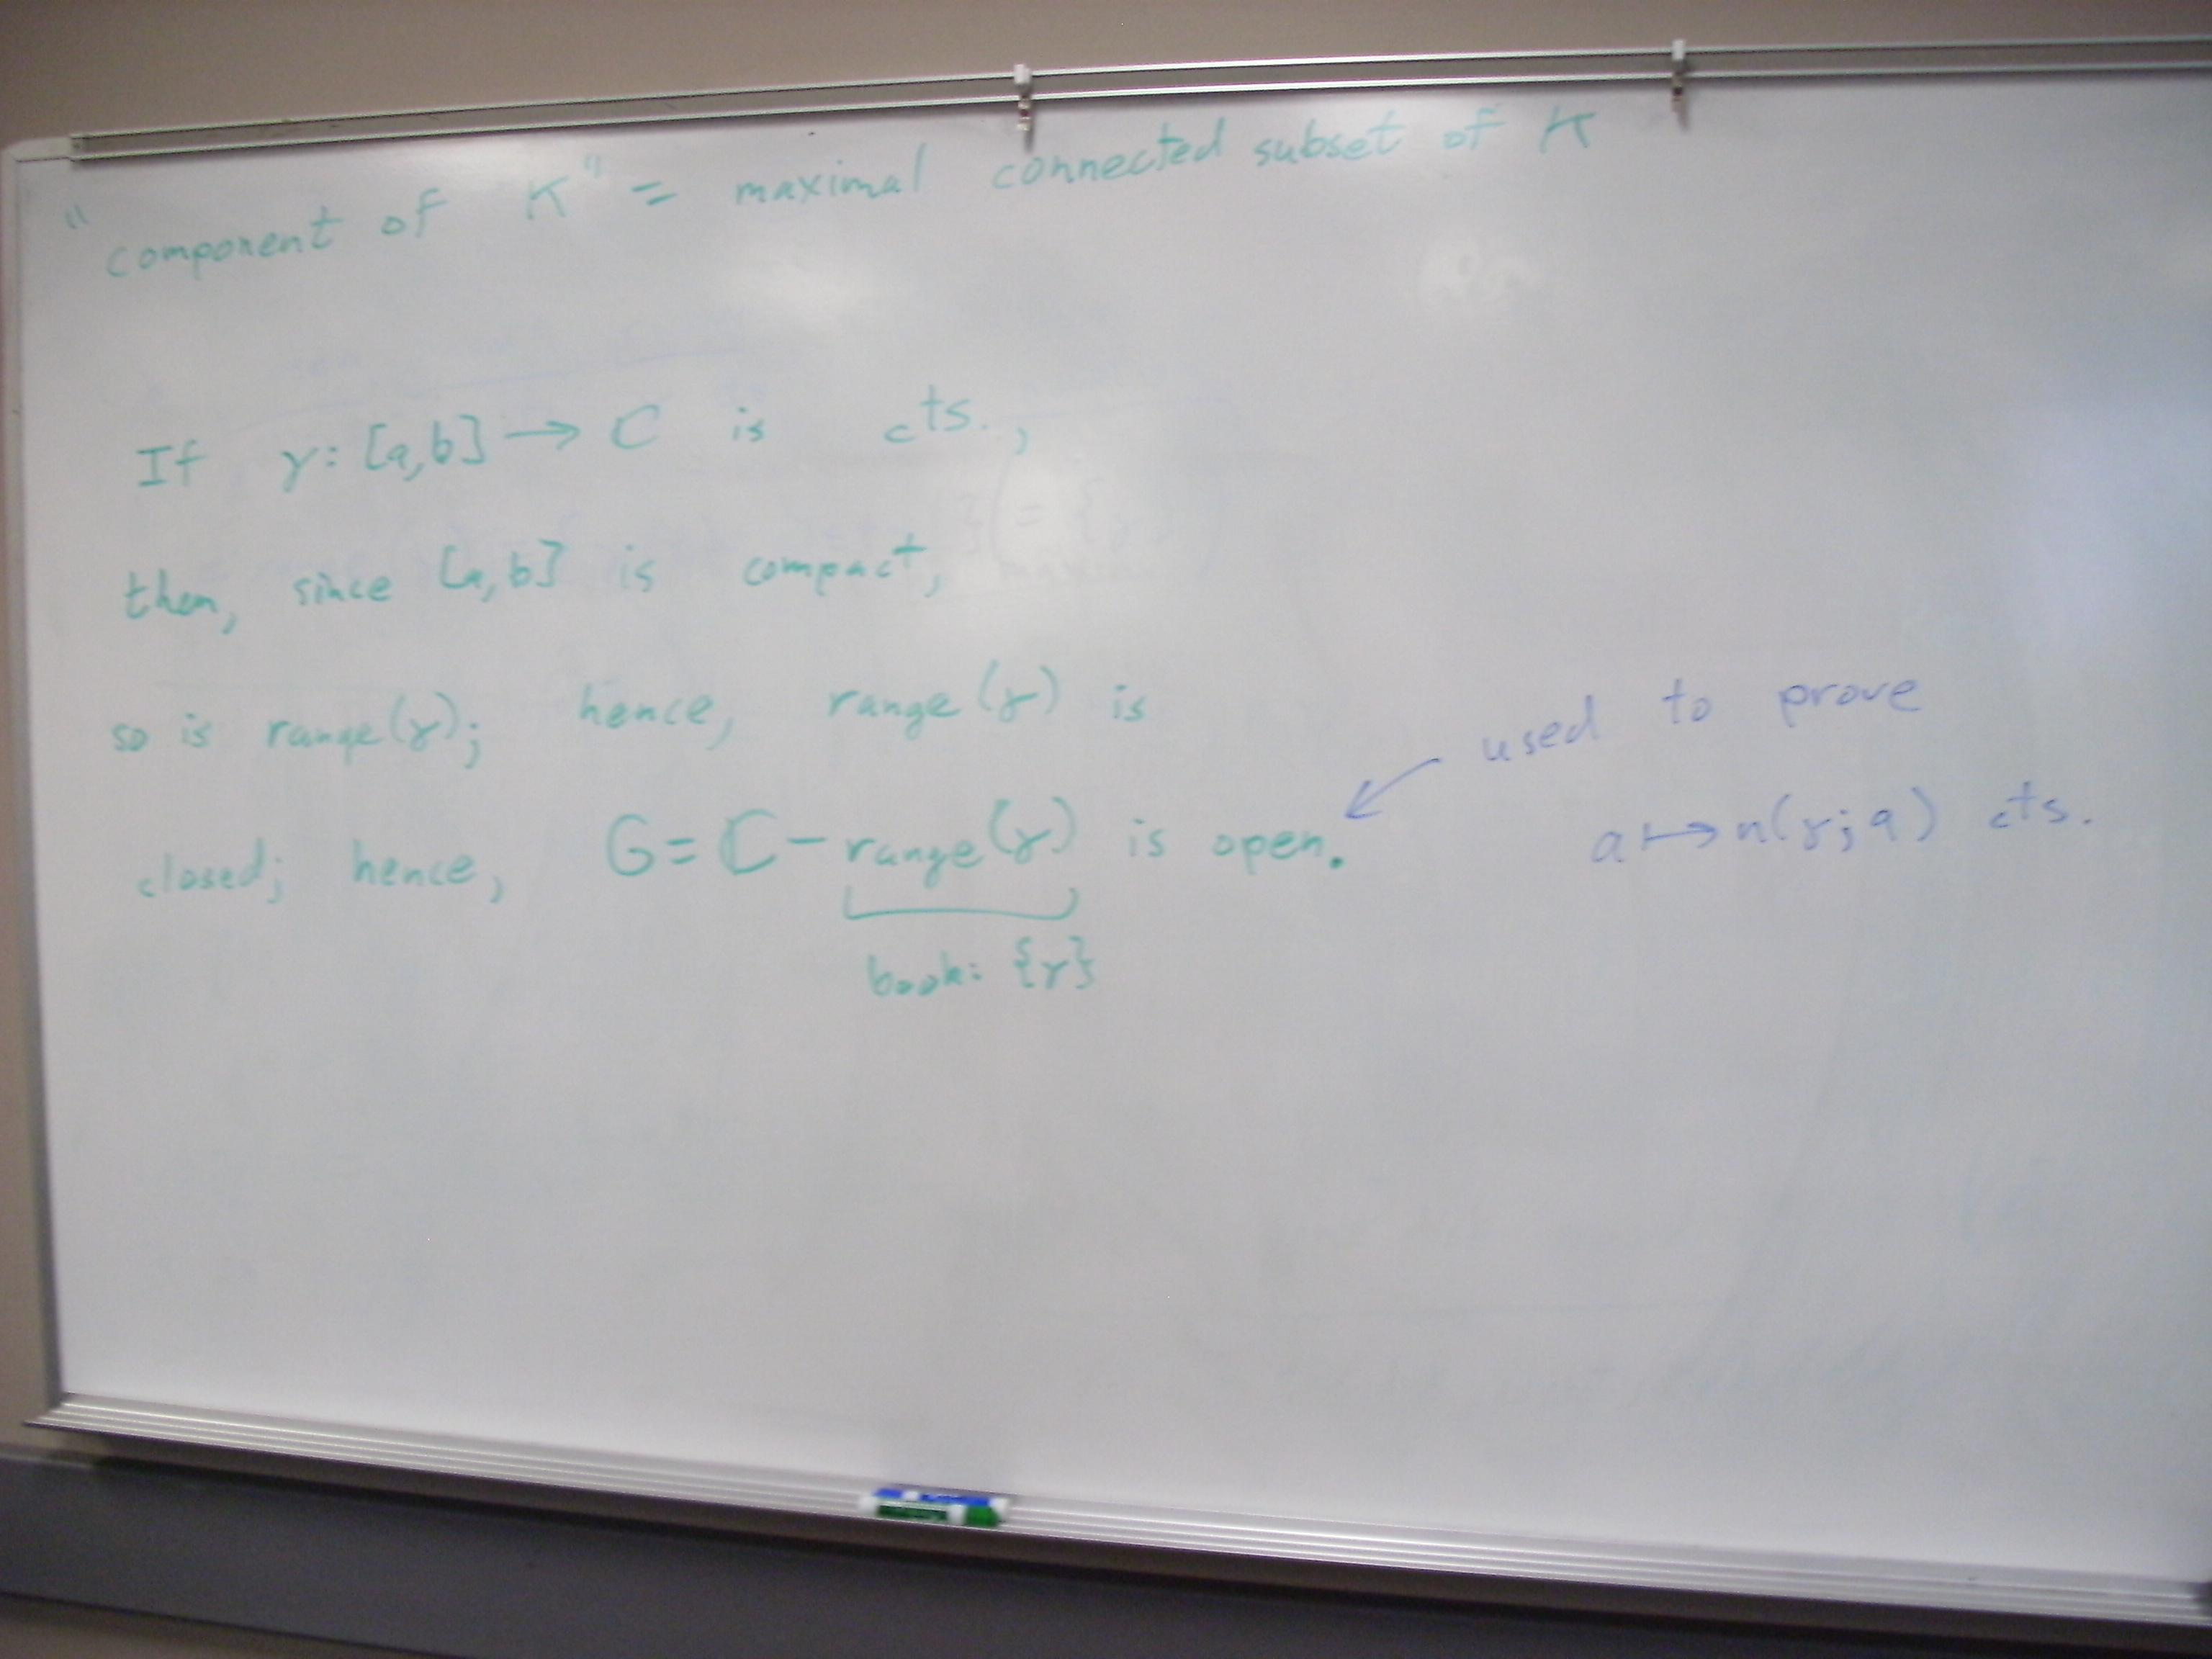 "component of K" = maximal connected subset of K
If γ: [a,b] → ℂ is cts.,
then, since [a,b] is compact,
so is range(γ); hence, range(γ) is
closed; hence, G = ℂ - range(γ) is open.
book: {γ}
used to prove
a ↦ n(γ;a) cts.